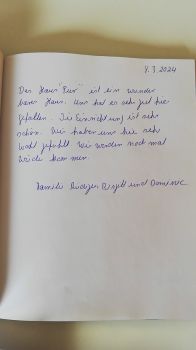 8.3.2024
Das Haus "Eur" ist ein wunder
bares Haus. Uns hat es sehr gut hie
gefallen. Die Einrichtung ist sehr
schön. Wir haben uns hie sehr
wohl gefühlt. Wir werden noch mal
wieder kommen.
Familie und Dominic